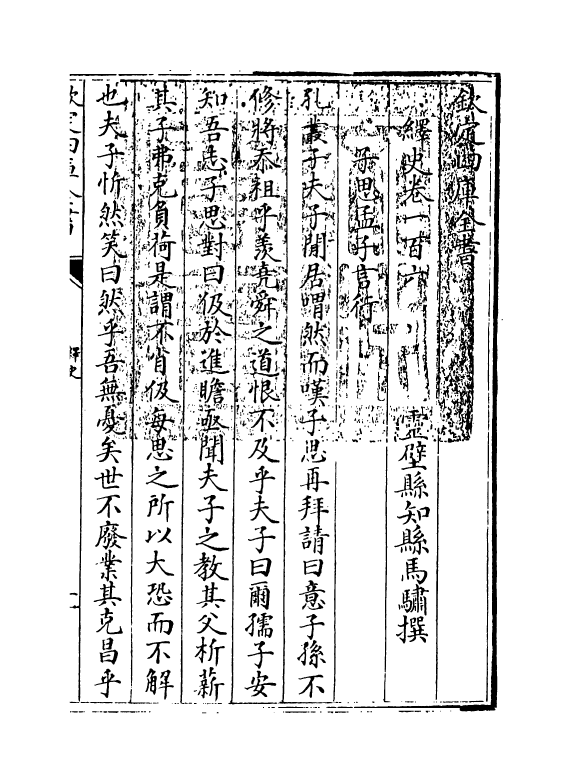 欽定四庫全書
繹史卷一百六
靈壁縣知縣馬驌撰
子思孟子言行
孔叢子夫子閒居喟然而嘆子思再拜請曰意子孫不
修將忝祖乎羨堯舜之道恨不及乎夫子曰爾孺子安
知吾志子思對曰伋於進瞻亟聞夫子之教其父析薪
其子弗克負荷是謂不肖伋每思之所以大恐而不解
也夫子忻然笑曰然乎吾無憂矣世不廢業其克昌乎
欽定四庫全書
繹史